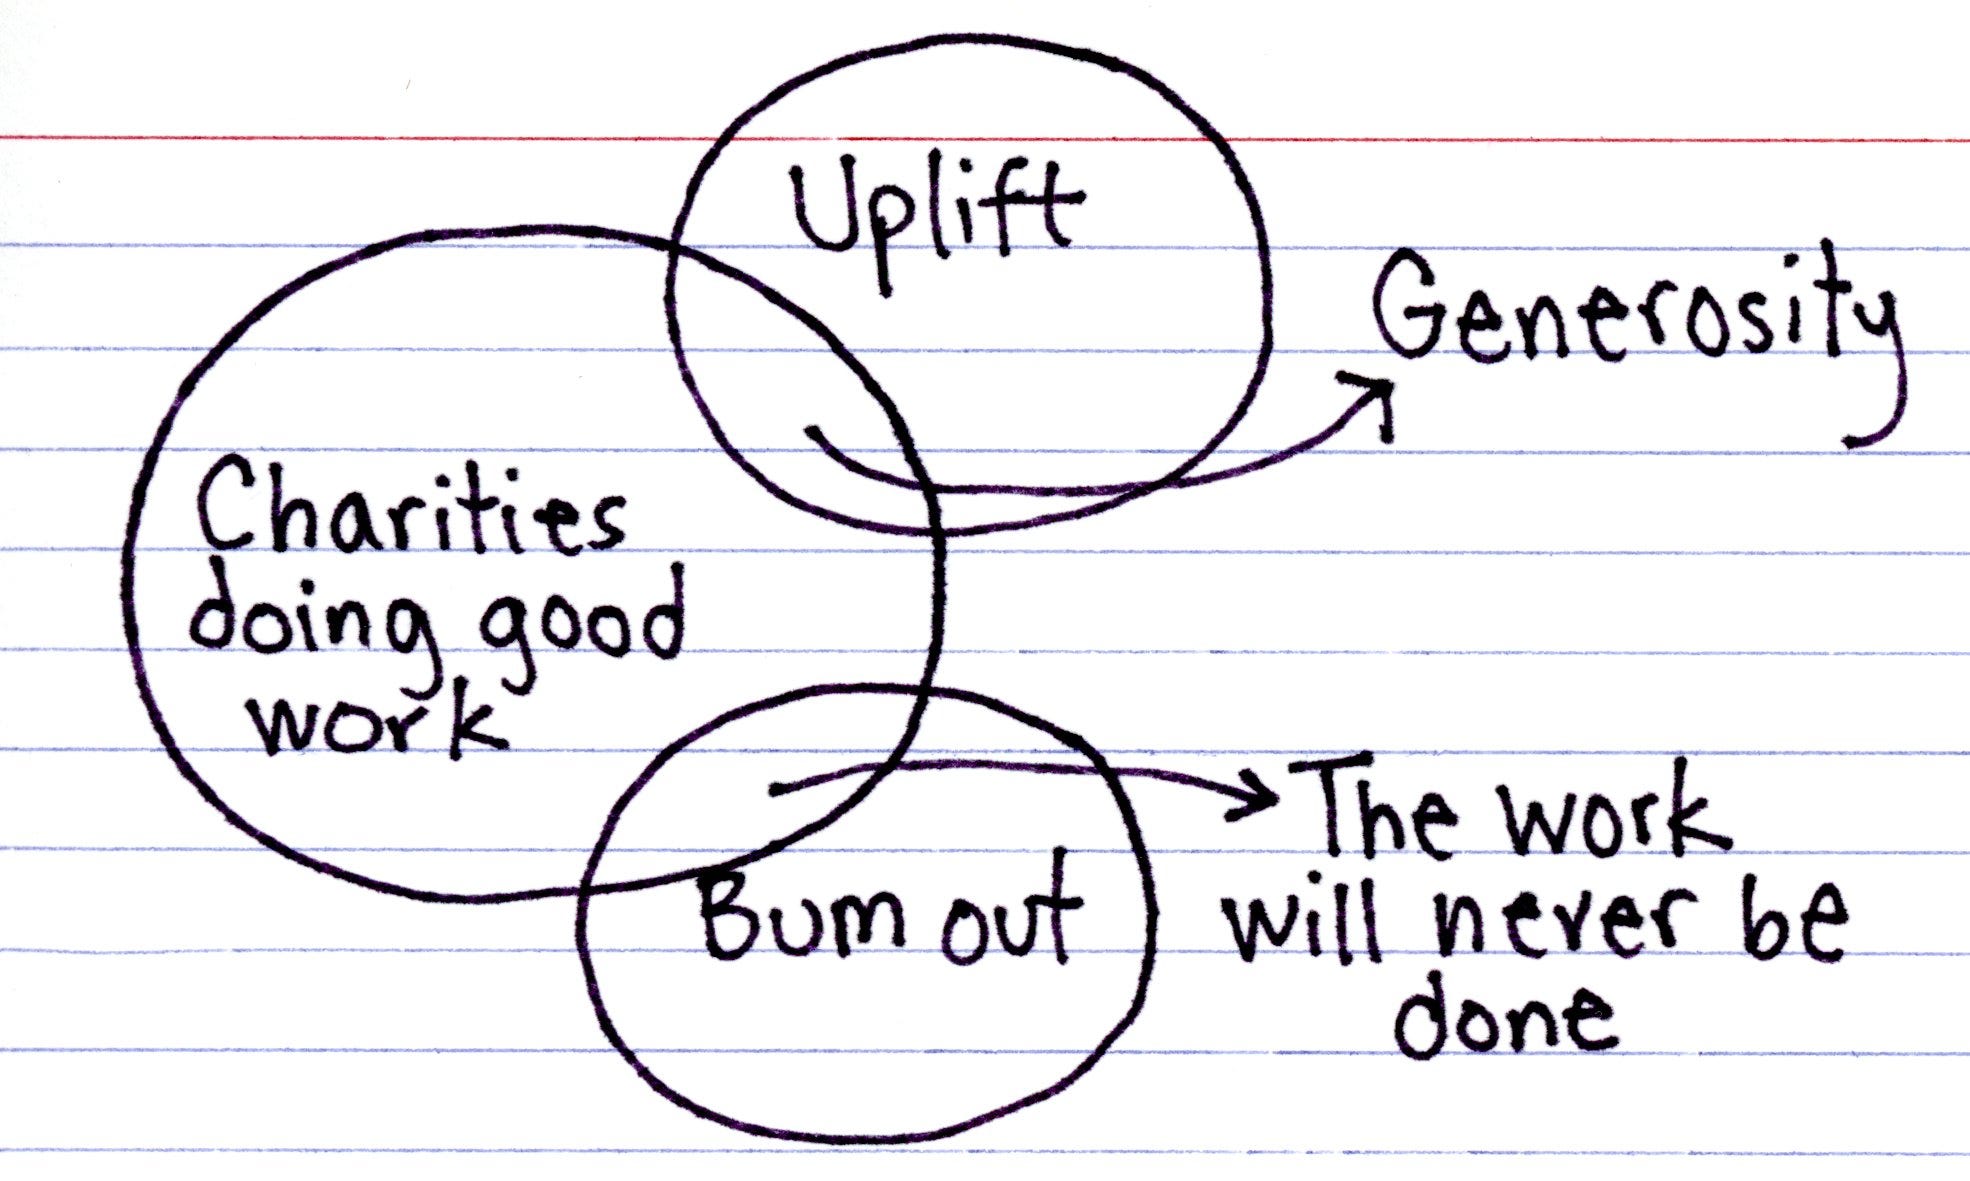 Uplift
Generosity
Charities
doing good
work
The work
will never be
done
Bum out